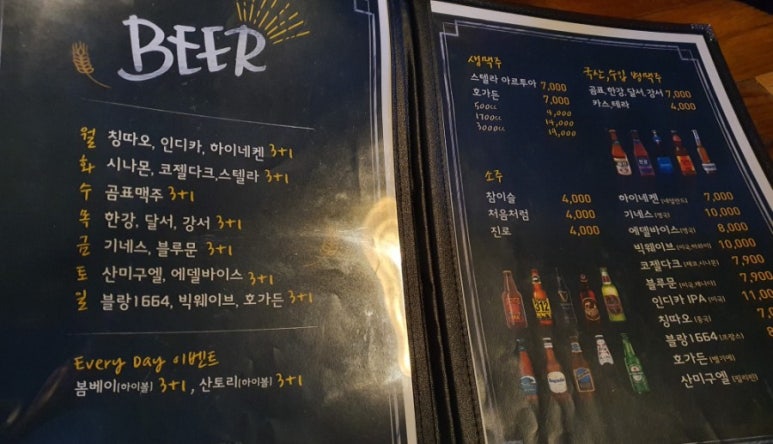 BEER
월 칭따오, 인디카, 하이네켄 3+1
화 시나몬, 코젤다크,스텔라 3+1
수 곰표맥주 3+1
목 한강, 달서, 강서 3+1
금 기네스, 블루문 3+1
토 산미구엘, 에델바이스 3+1
일 블랑1664, 빅웨이브, 호가든 3+1
Every Day 이벤트
봄베이(하이볼) 3+1, 산토리(하이볼) 3+1
생맥주
스텔라 아르투아 7,000
호가든 7,000
500cc 4,000
1700cc 14,000
3000cc
국산,수입 병맥주
곰표,한강,달서,강서 7,000
카스,테라 4,000
소주
참이슬 4,000
처음처럼 4,000
진로 4,000
하이네켄 (네덜란드) 7,000
기네스 (영국) 10,000
에델바이스 8,000
빅웨이브 (미국,하와이) 10,000
코젤다크 (체코,시나몬) 7,900
블루문 7,900
인디카 IPA (미국) 11,0
칭따오 (중국)
블랑1664 (프랑스)
호가든 (벨기에)
산미구엘 (필리핀)